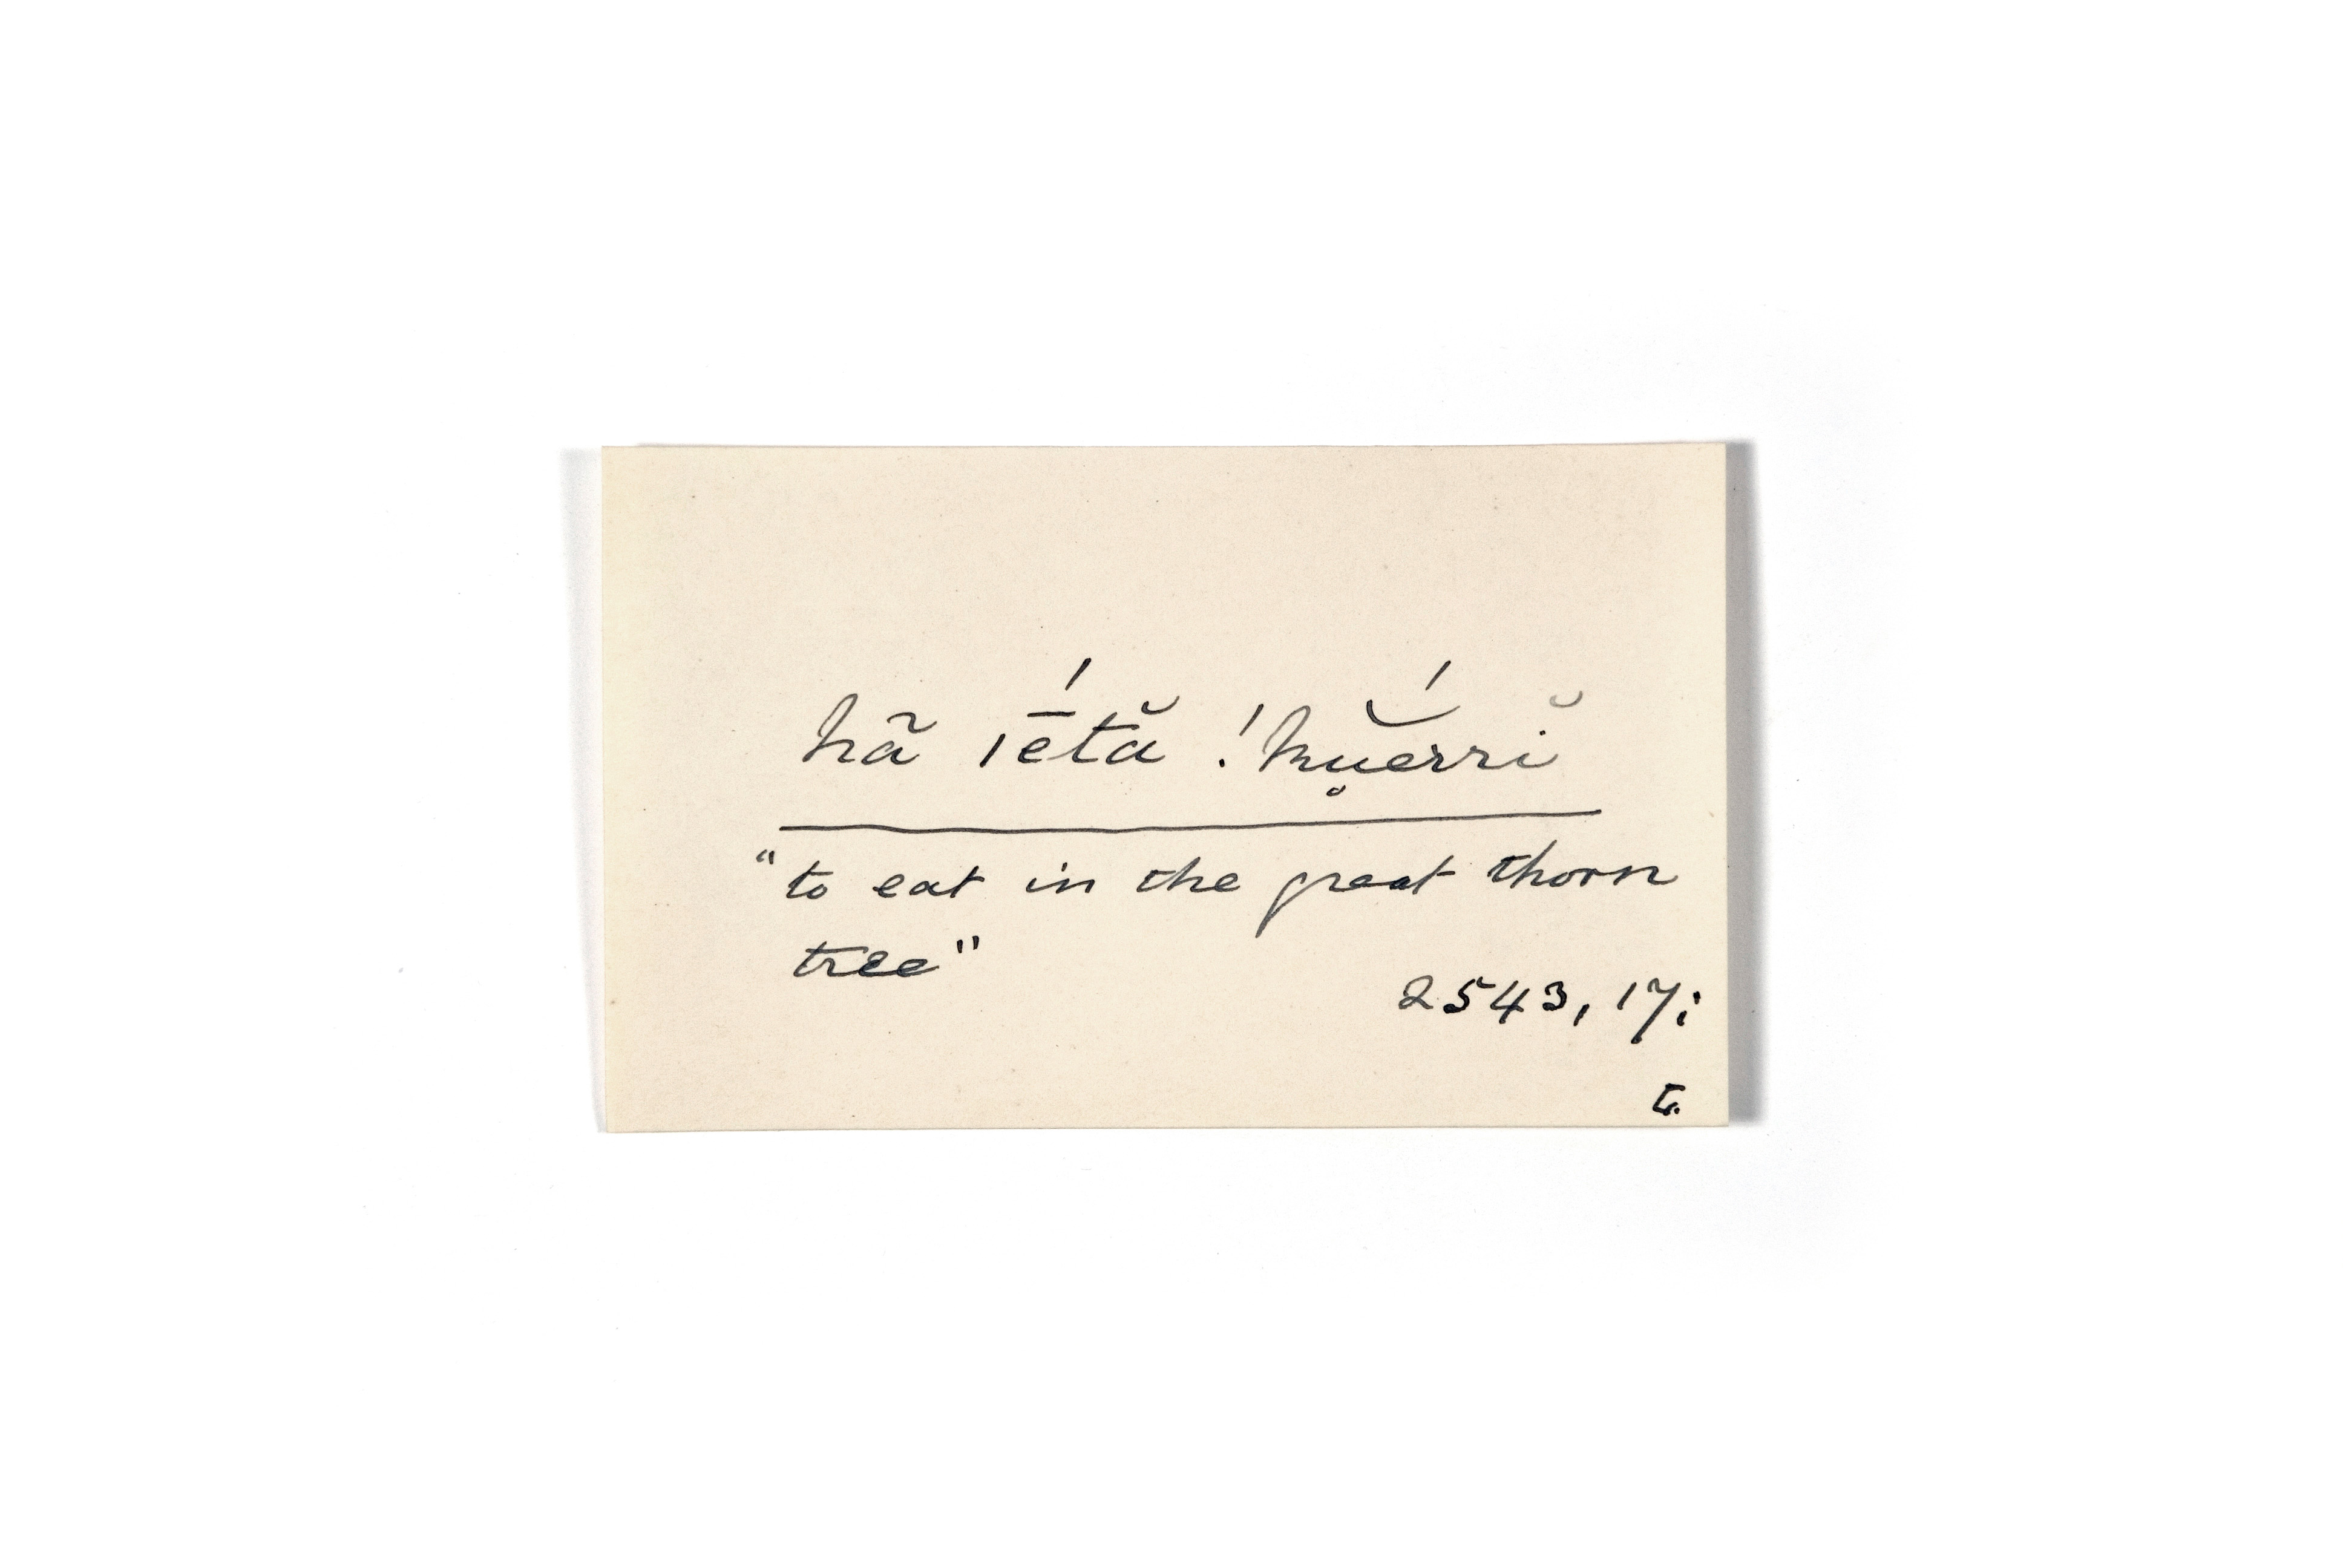 hã |ḗtă !kụĕ́rrĭ
"to eat in the great thorn
tree"
2543, 17;
t.